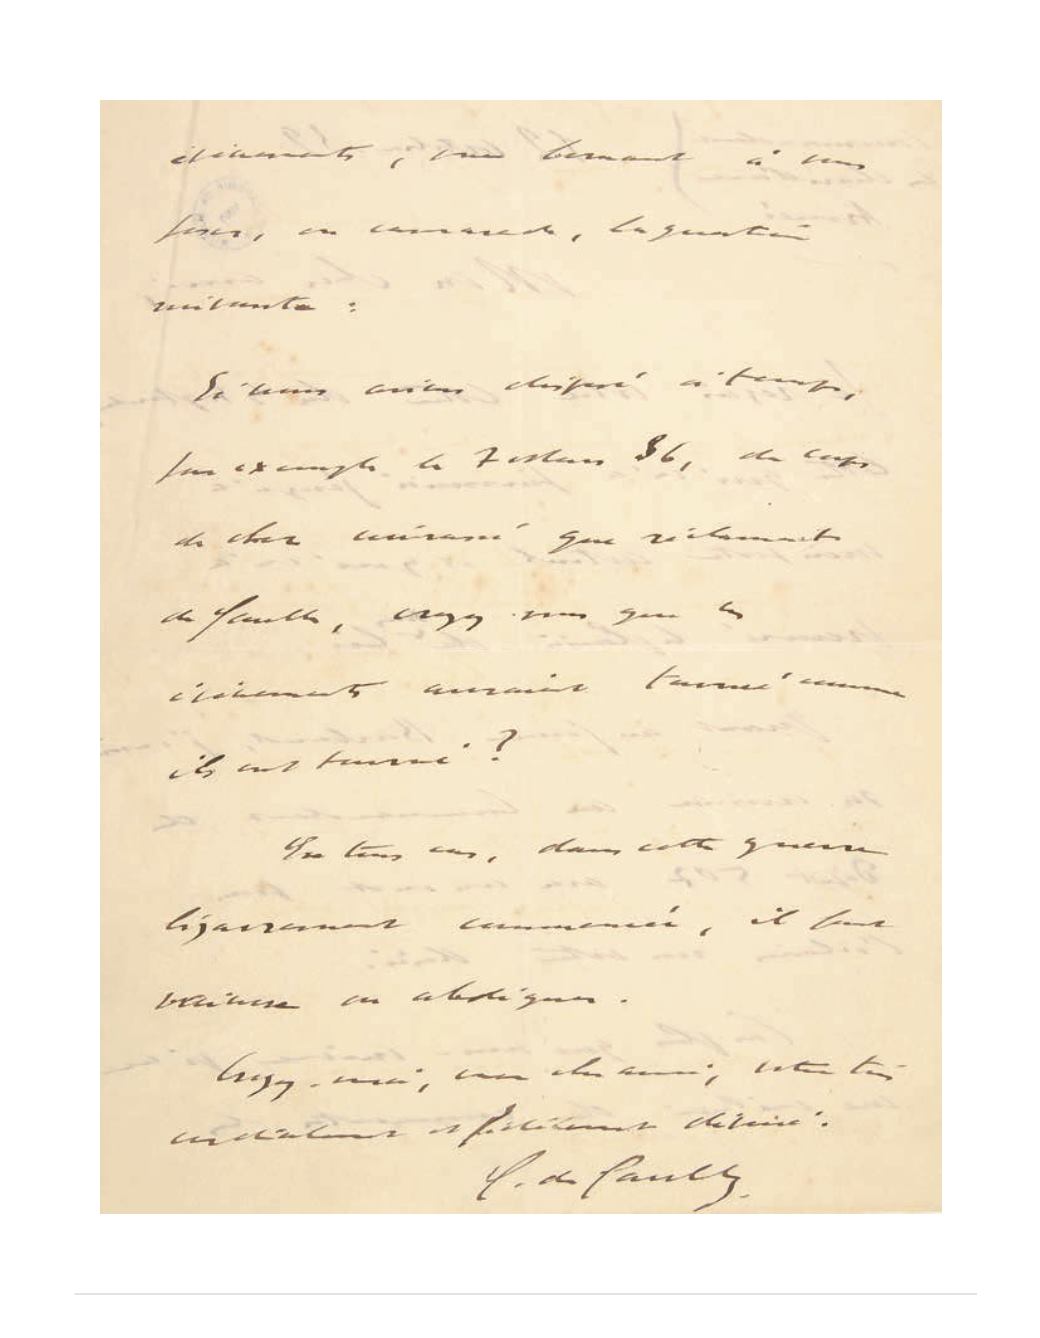 événements, me bornant à vous
poser, en camarade, la question
suivante :
Si nous avions disposé à temps,
par exemple le 7 mars 36, du corps
de choc cuirassé que réclamait
de Gaulle, croyez-vous que les
événements auraient tourné comme
ils ont tourné ?
En tous cas, dans cette guerre
bizarrement commencée, il faut
vaincre ou abdiquer.
Croyez-moi, mon cher ami, votre très
cordialement et fidèlement dévoué.
C. de Gaulle.